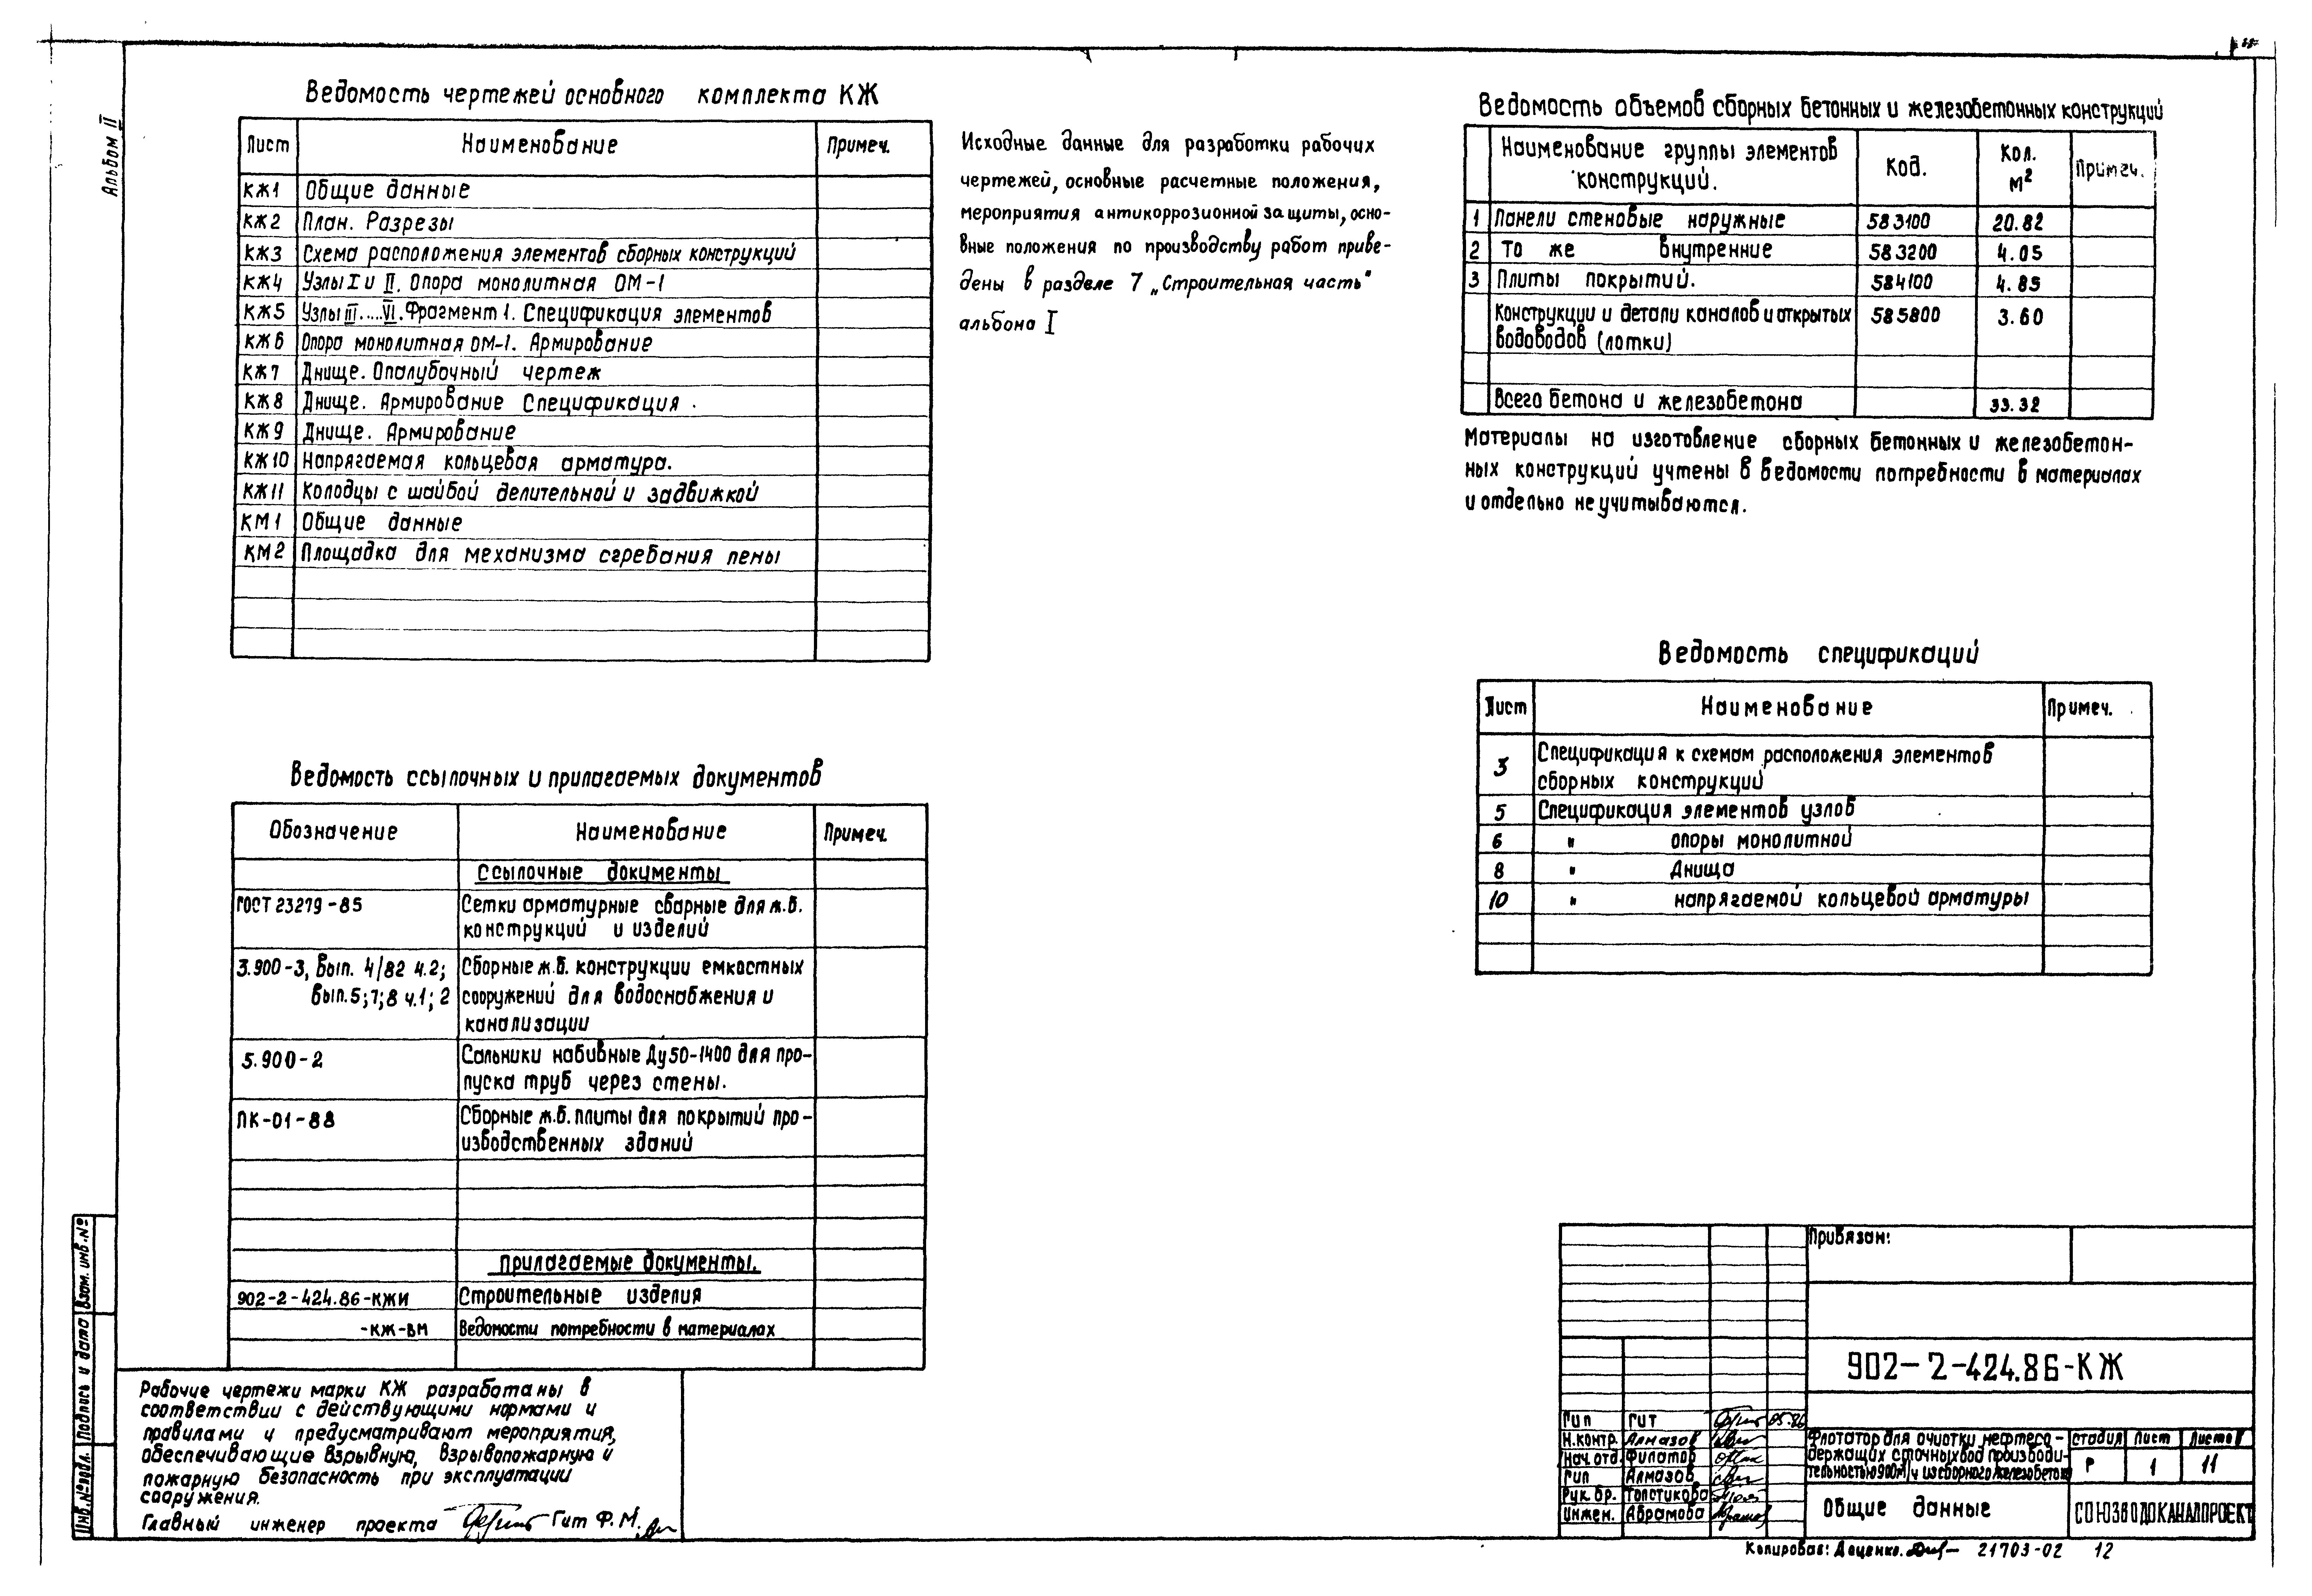 Альбом II
Ведомость чертежей основного комплекта КЖ
Лист Наименование Примеч.
КЖ1 Общие данные
КЖ2 План. Разрезы
КЖ3 Схема расположения элементов сборных конструкций
КЖ4 Узлы I и II. Опора монолитная ОМ-1
КЖ5 Узлы III....VI. Фрагмент 1. Спецификация элементов
КЖ6 Опора монолитная ОМ-1. Армирование
КЖ7 Днище. Опалубочный чертеж
КЖ8 Днище. Армирование Спецификация .
КЖ9 Днище. Армирование
КЖ10 Напрягаемая кольцевая арматура.
КЖ11 Колодцы с шайбой делительной и задвижкой
КМ1 Общие данные
КМ2 Площадка для механизма сгребания пены
Ведомость ссылочных и прилагаемых документов
Обозначение Наименование Примеч.
Ссылочные документы
ГОСТ 23279-85 Сетки арматурные сварные для ж.б.
конструкций и изделий
3.900-3, Вып. 4/82 ч.2; Сборные ж.б. конструкции емкостных
Вып.5;7;8 ч.1; 2 сооружений для водоснабжения и
канализации
5.900-2 Сальники набивные Ду50-1400 для про-
пуска труб через стены.
ПК-01-88 Сборные ж.б. плиты для покрытий про-
изводственных зданий
Прилагаемые документы.
902-2-424.86-КЖИ Строительные изделия
-КЖ-ВМ Ведомости потребности в материалах
Рабочие чертежи марки КЖ разработаны в
соответствии с действующими нормами и
правилами и предусматривают мероприятия,
обеспечивающие взрывную, взрывопожарную и
пожарную безопасность при эксплуатации
сооружения.
Главный инженер проекта Гит Ф.М.
Инв.№подл. Подпись и дата Взам. инв.№
Исходные данные для разработки рабочих
чертежей, основные расчетные положения,
мероприятия антикоррозионной защиты, осно-
вные положения по производству работ приве-
дены в разделе 7 „Строительная часть"
альбома I
Ведомость объемов сборных бетонных и железобетонных конструкций
Наименование группы элементов конструкций. Код. Кол. м² Примеч.
1 Панели стеновые наружные 583100 20.82
2 То же внутренние 583200 4.05
3 Плиты покрытий. 584100 4.85
Конструкции и детали каналов и открытых 585800 3.60
водоводов (лотки)
Всего бетона и железобетона 33.32
Материалы на изготовление сборных бетонных и железобетон-
ных конструкций учтены в ведомости потребности в материалах
и отдельно не учитываются.
Ведомость спецификаций
Лист Наименование Примеч.
3 Спецификация к схемам расположения элементов
сборных конструкций
5 Спецификация элементов узлов
6 " опоры монолитной
8 " Днища
10 " напрягаемой кольцевой арматуры
Привязан:
902-2-424.86-КЖ
Гип Гит 05.86
Н.контр. Алмазов
Нач. отд. Филатов
Гип Алмазов
Рук. бр. Толстикова
Инжен. Абрамова
Флотатор для очистки нефтесо-
держащих сточных вод производи-
тельностью 900м³/ч из сборного железобетона
Стадия Лист Листов
Р 1 11
Общие данные
СОЮЗВОДОКАНАЛПРОЕКТ
Копировал: Доценко. 21703-02 12